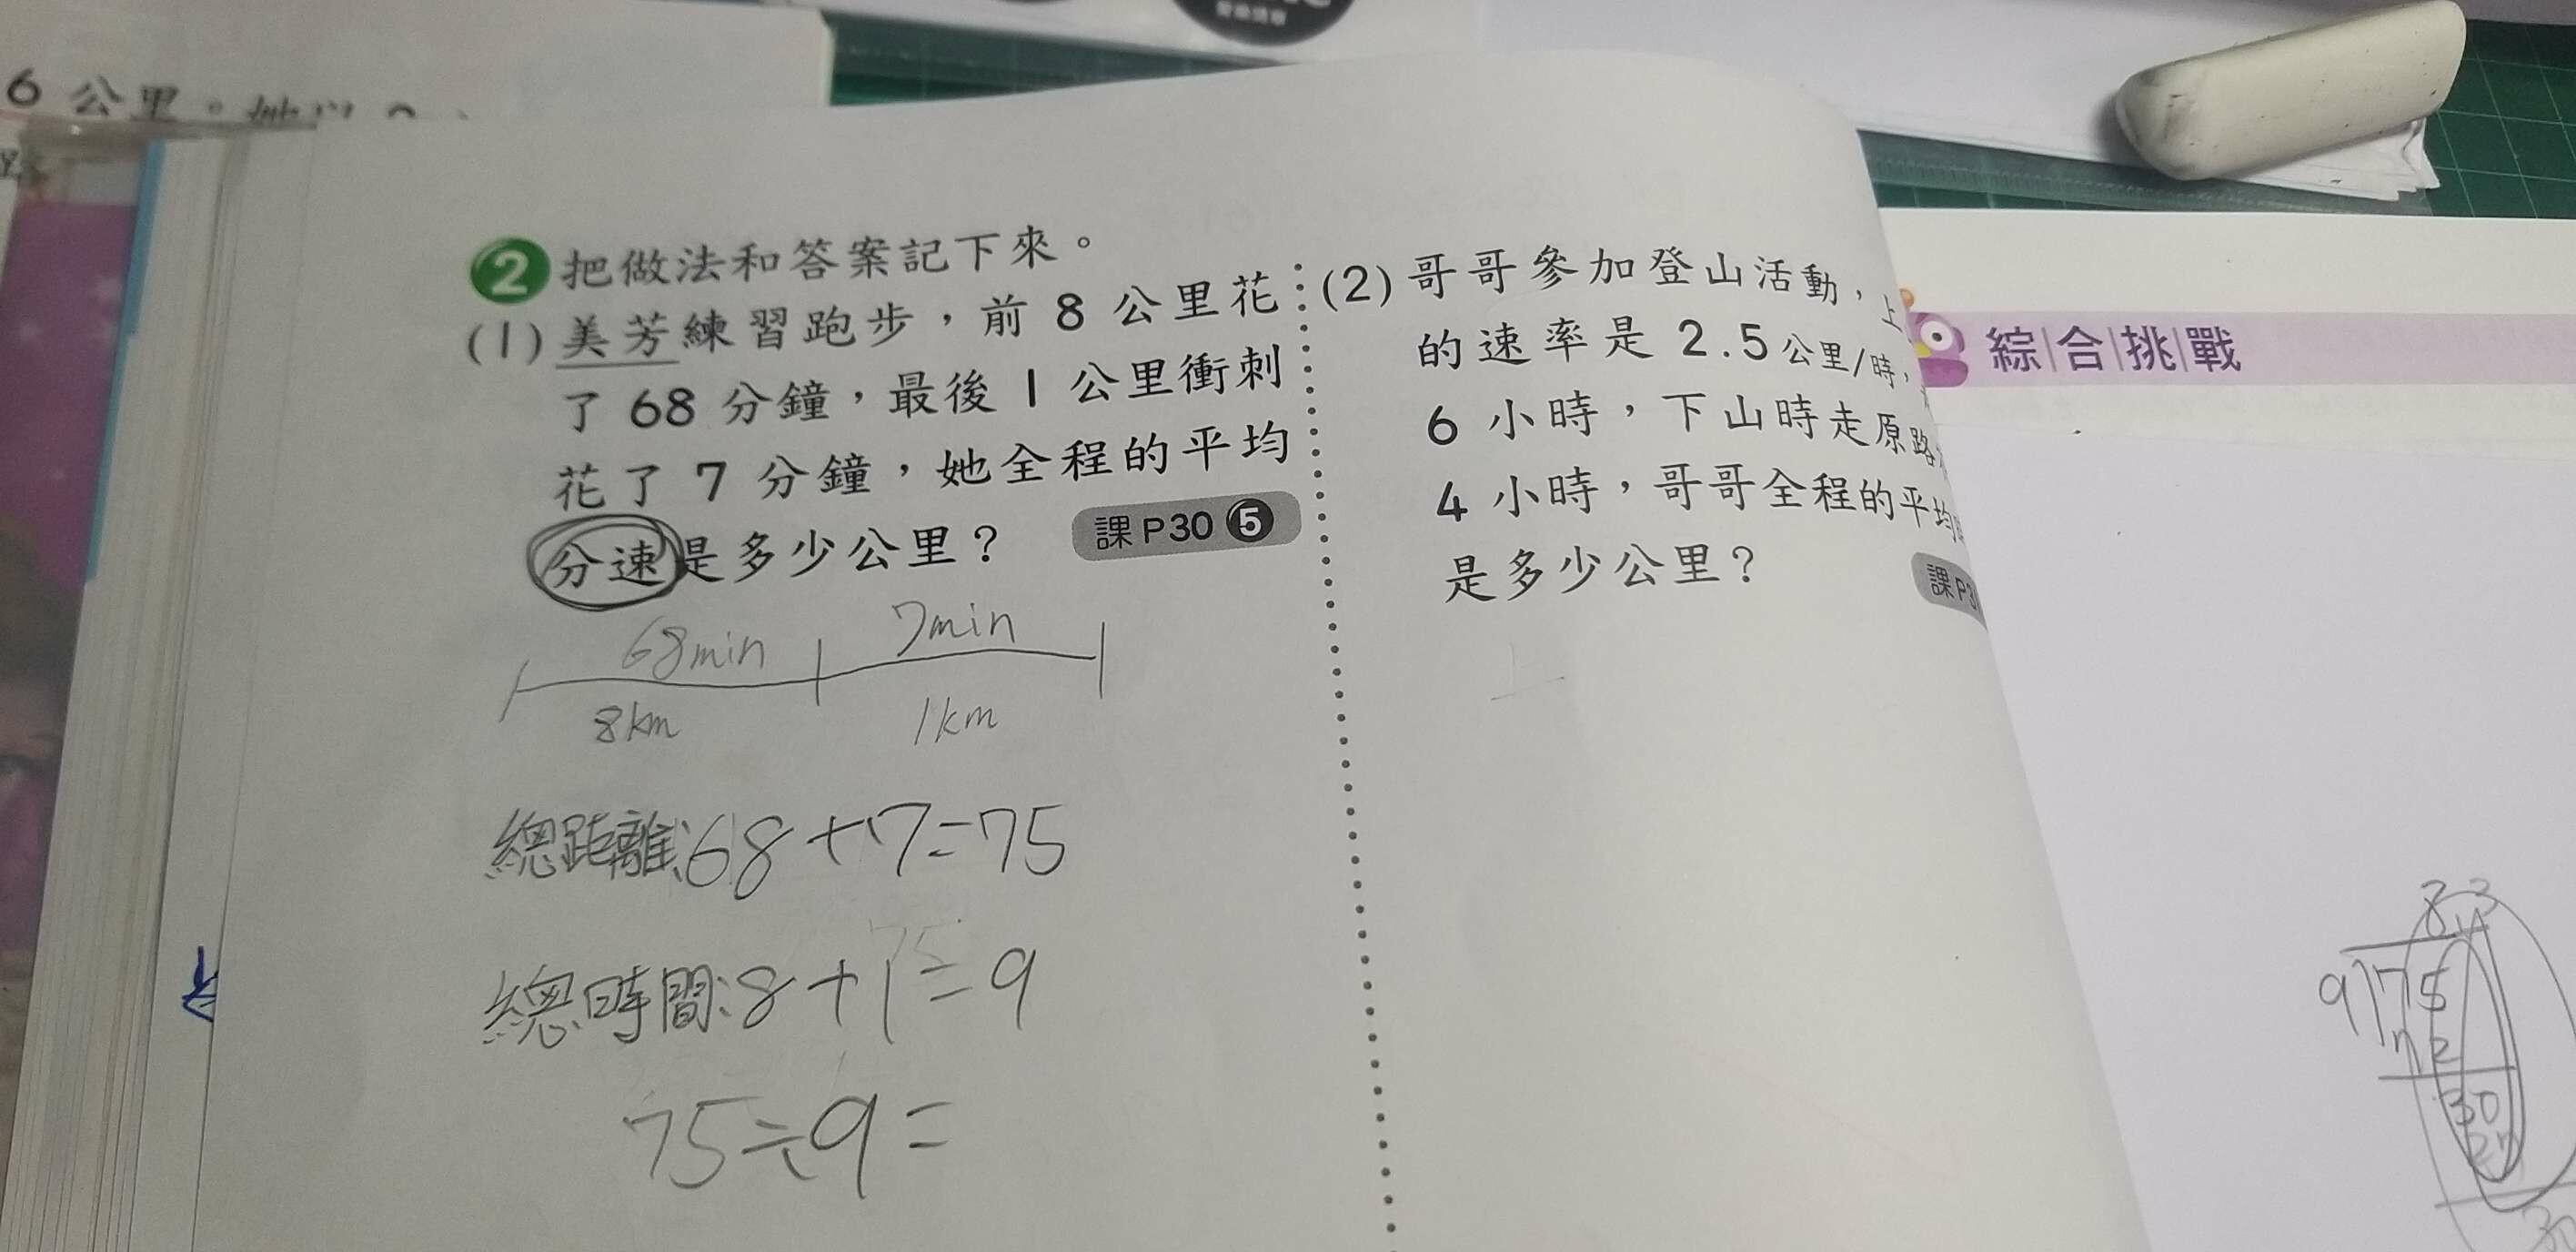 6 公里。
2 把做法和答案記下來。
(1) 美芳練習跑步，前 8 公里花
了 68 分鐘，最後 1 公里衝刺
花了 7 分鐘，她全程的平均
分速是多少公里？
課 P30 5
68min 7min
8km 1km
總距離:68+7=75
總時間:8+1=9
75÷9=
(2) 哥哥參加登山活動，上
的速率是 2.5 公里/時，
6 小時，下山時走原路
4 小時，哥哥全程的平均
是多少公里？
課 P3
綜合挑戰
8 3
9 75
72
30
27
30